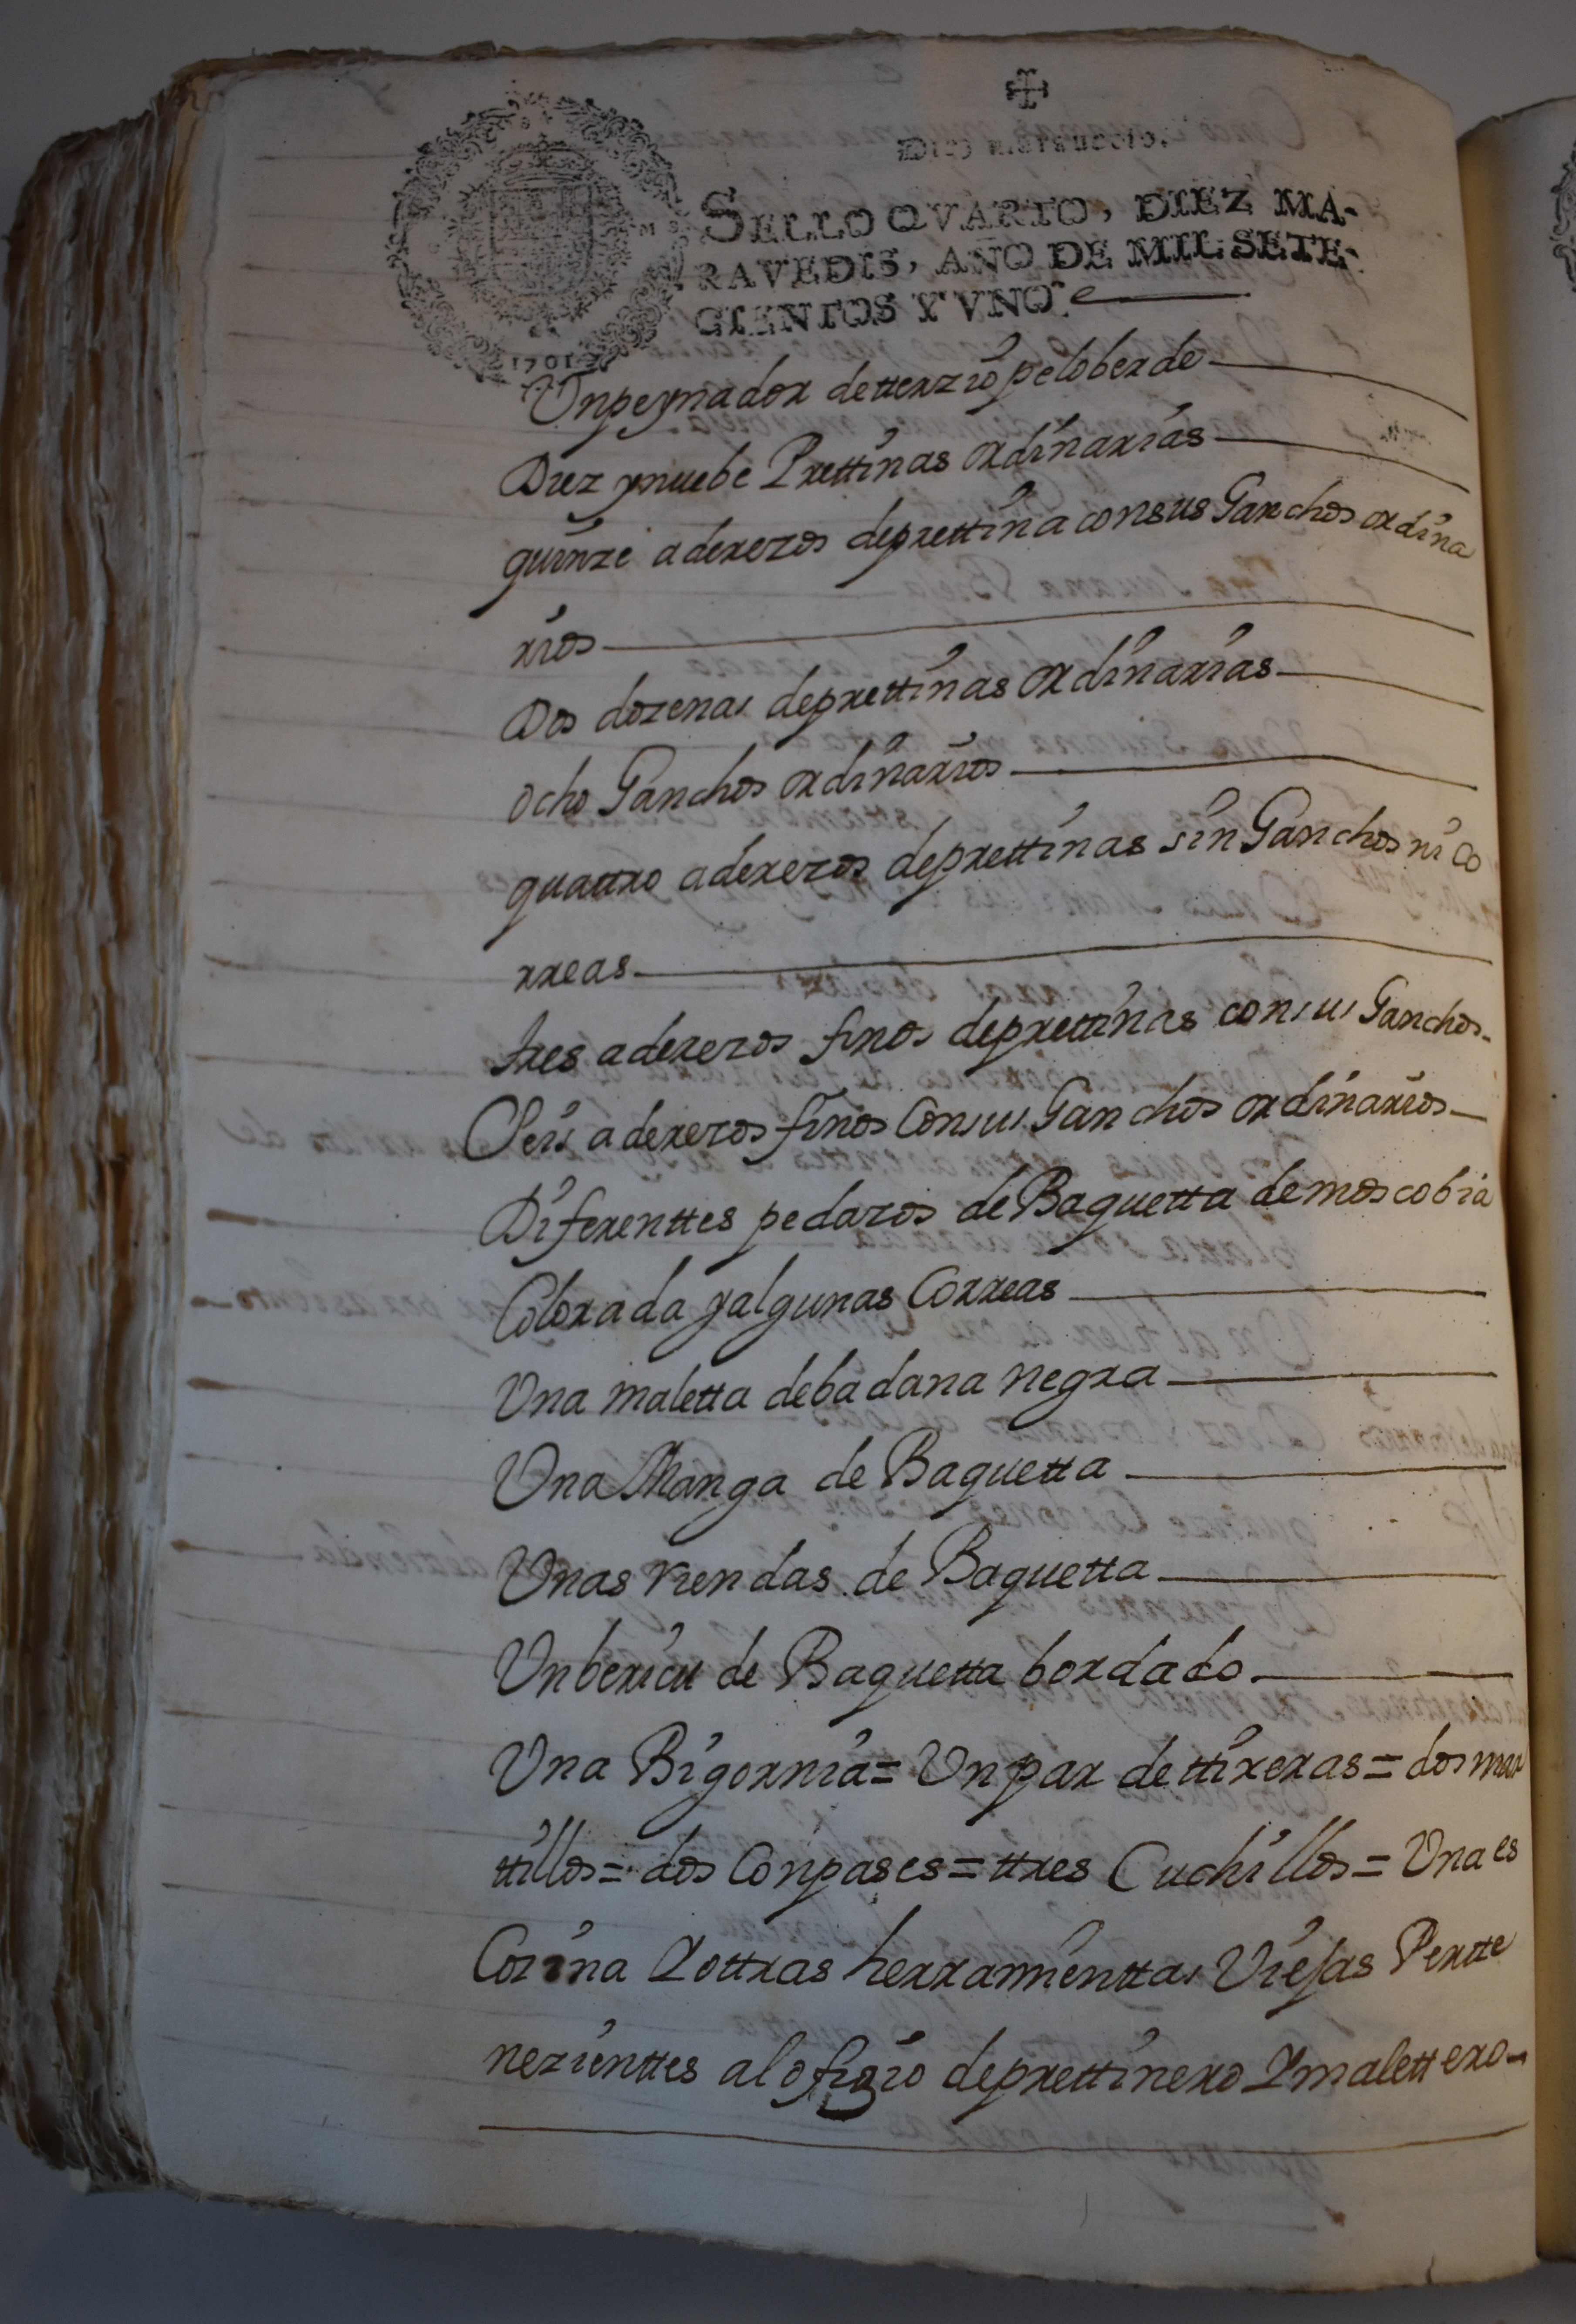 Diez maravedis.
SELLO QVARTO, DIEZ MA-
RAVEDIS, AÑO DE MIL SETE-
CIENTOS Y VNO.
1701
Vnpeynador detterzio pelo berde
Diez ynuebe Prettinas ordinarias
quinze aderezos deprettina consus Ganchos ordina
rios
Dos dozenas deprettinas ordinarias
ocho Ganchos ordinarios
quattro aderezos deprettinas sin Ganchos ni co
rreas
tres aderezos finos deprettinas consus Ganchos
Seis aderezos finos Consus Ganchos ordinarios
Diferenttes pedazos de Baquetta demoscobia
Colorada yalgunas Correas
Vna maletta debadana negra
Vna Manga de Baquetta
Vnas riendas de Baquetta
Vnbericu de Baquetta bordado
Vna Bigornia = Vn par de ttixeras = dos mar
ttillos = dos Conpases = ttres Cuchillos = Vna es
Cozina Y ottras herramienttas Viejas Pertte
nezienttes al ofizio deprettinero Y malettero